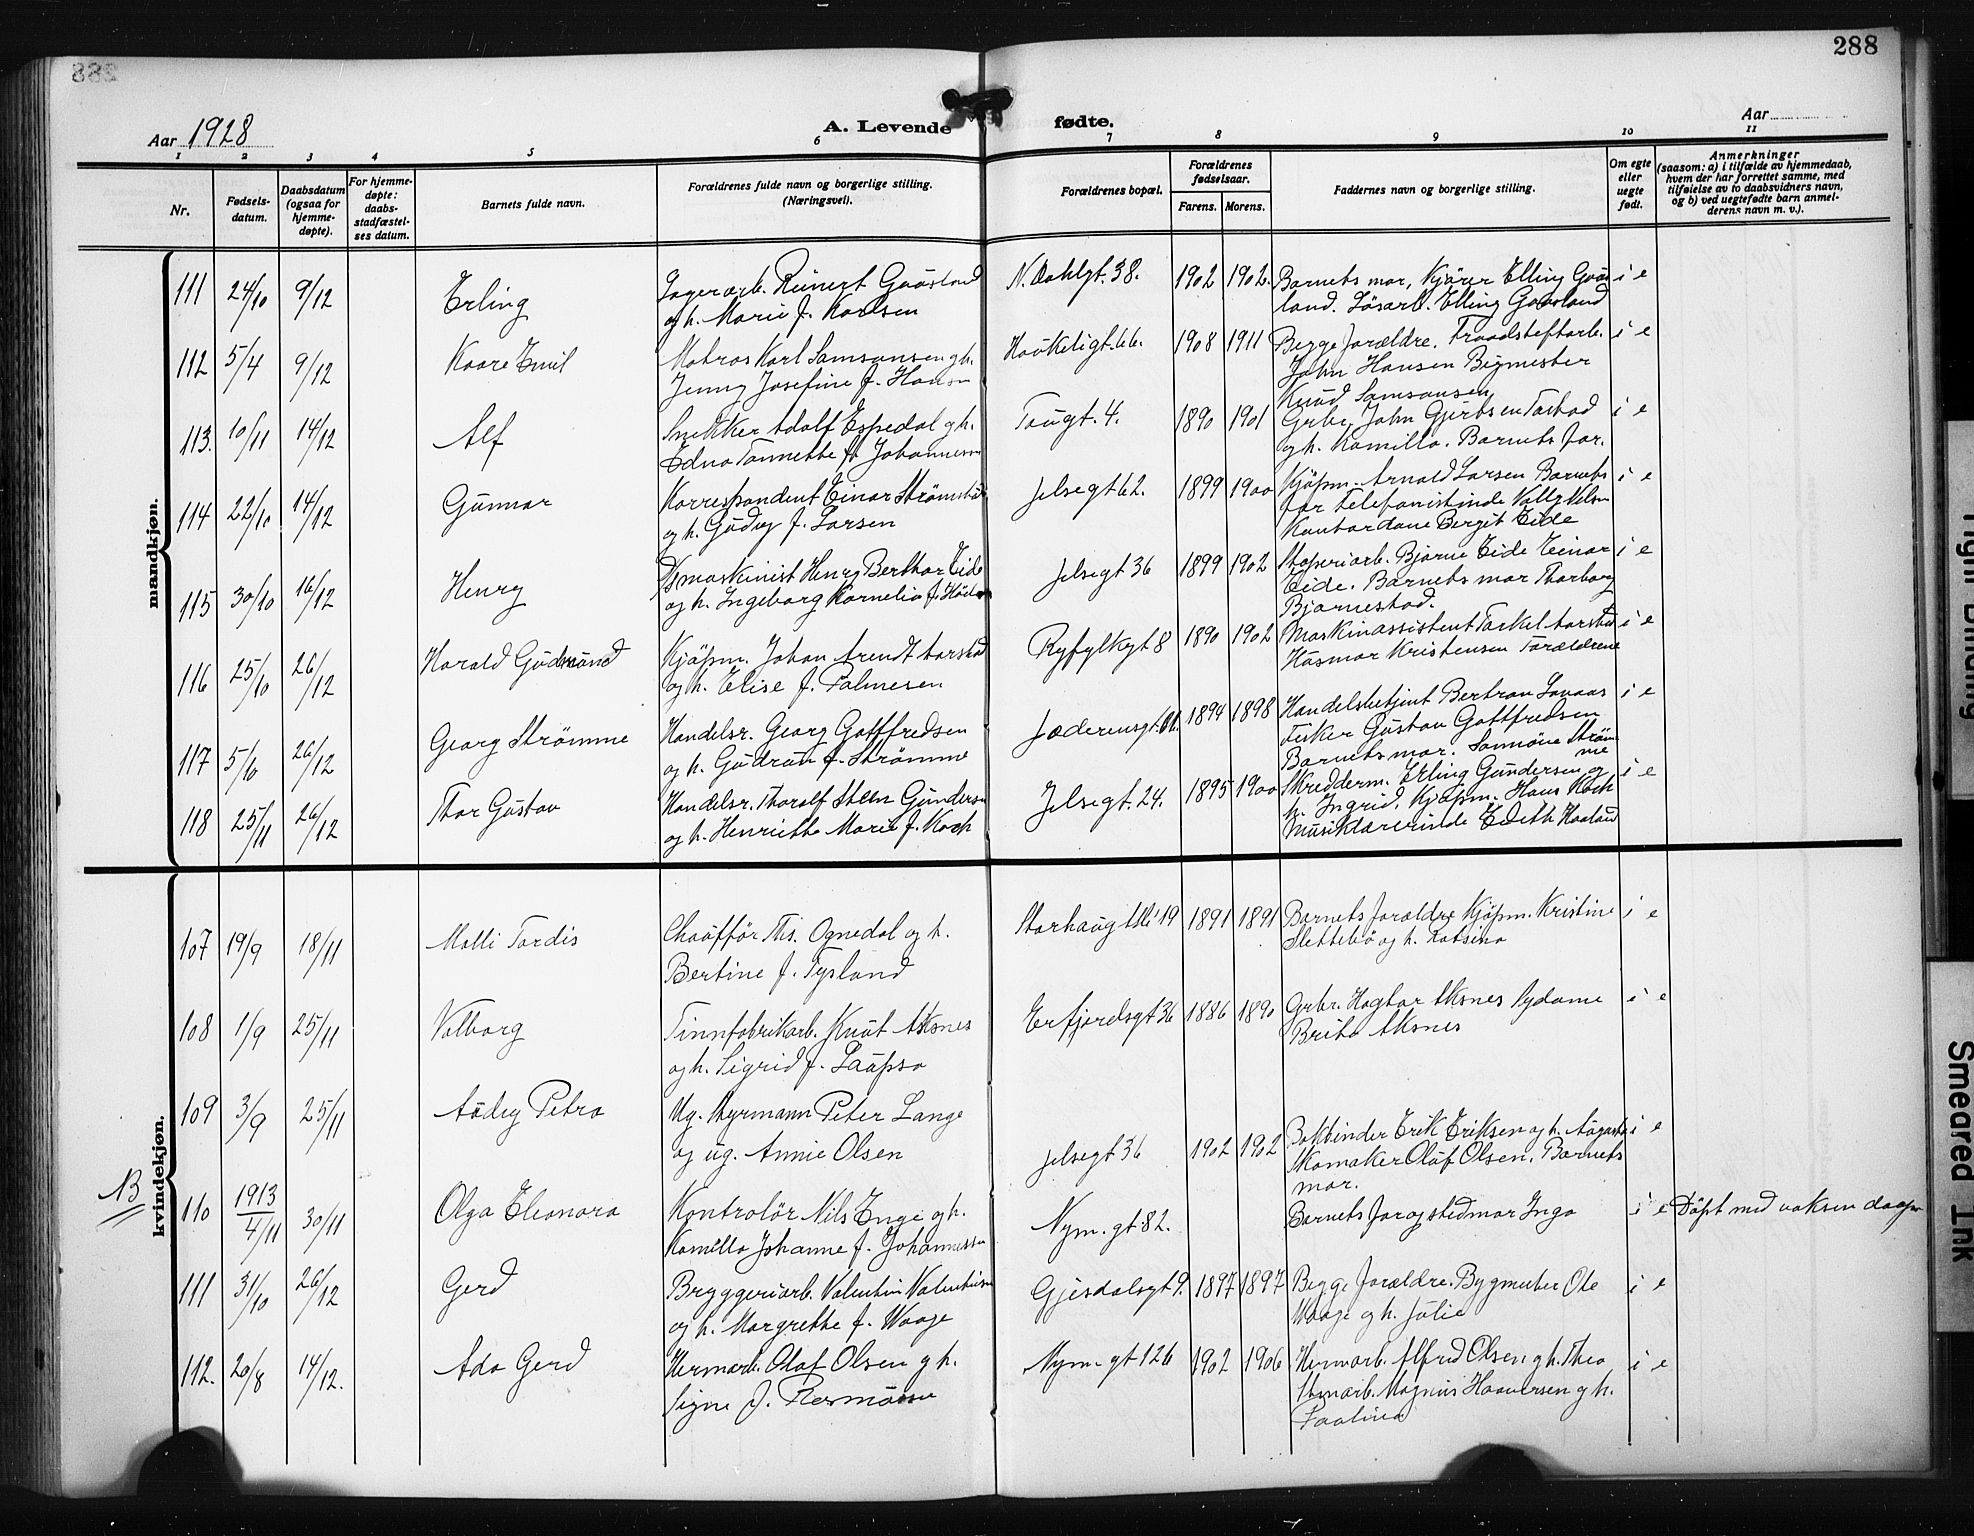 288
Aar 1928
A. Levende fødte.
Aar
1 2 3 4 5 6 7 8 9 10 11
Nr.
Fødselsdatum.
Daabsdatum (ogsaa for hjemmedøpte).
For hjemmedøpte: daabsstadfæstelses datum.
Barnets fulde navn.
Forældrenes fulde navn og borgerlige stilling. (Næringsvei).
Forældrenes bopæl.
Forældrenes fødselsaar.
Farens. Morens.
Faddernes navn og borgerlige stilling.
Om egte eller uegte født.
Anmerkninger (saasom: a) i tilfælde av hjemmedaab, hvem der har forrettet samme, med tilføielse av to daabsvidners navn, og b) ved uegtefødte barn anmelderens navn m. v.).
mandkjøn.
111 24/10 9/12 Erling
Lagerarb. Reinert Gaasland
og h. Marie f. Karlsen
N. Dahlgt. 38. 1902 1902.
Barnets mor, Kjører Elling Gaas
land. Løsarb. Elling Gaasland
i e
112 5/4 9/12 Kaare Emil
Matros Karl Samsonsen og h.
Jenny Josefine f. Hansen
Haukeligt. 66. 1908 1911
Begge forældre.
John Hansen Bigmester
Knud Samsonsen
i e
113. 10/11 14/12 Alf
Snekker Adolf Espedal og h.
Edna Tonnette f. Johannessen
Tougt. 4. 1890 1901
Grbr. John Gjertsen Tastad
og h. Kamilla. Barnets far.
i e
114 22/10 14/12 Gunnar
Korrespondent Einar Strømstad
og h. Gudny f. Larsen
Jelsegt 62. 1899 1900
Kjøpm. Arnold Larsen Barnets
far Telefonistinde Vally Nelson
Kontordame Bergit Eide
i e
115 30/10 16/12 Henry
maskinist Henry Berthar Eide
og h. Ingeborg Kornelia f.
Jelsegt 36 1899 1902
Bjarne Eide Einar
Eide. Barnets mor Thorborg
Bjarnestad.
i e
116 25/10 26/12 Harald Gudmund
Kjøpm. Johan Arendt Aarstad
og h. Elise f. Palmesen
Ryfylkegt 8 1890 1902
Maskinassistent Torkel Aarstad
Husmor Kristensen Forældrene
i e
117 5/6 26/12 Georg Strømme
Handelsr. Georg Gottfredsen
og h. Gudrun f. Strømme
Jæderensgt. 1894 1898
Handelsbetjent Bertran Lavaas
Fisker Gustav Gottfredsen
Barnets mor. Sannøne Strøm
me
i e
118 25/11 26/12 Thor Gustav
Handelsr. Thoralf Steen Gundersen
og h. Henriette Marie f. Koch
Jelsegt. 24. 1895 1900
Skrædderm. Erling Gundersen og
h. Ingrid. Kjøpm. Hans Koch
Musiklærerinde Edith Haaland
i e
kvindekjøn.
107 19/9 18/11 Malli Tordis
Chauffør Ths. Ognedal og h.
Bertine f. Tysland
Storhaug 19 1891 1891
Barnets forældre Kjøpm. Kristine
Slettebø og h. Rasina
i e
108 1/9 25/11 Valborg
Tinnfabrikarb. Knut Aksnes
og h. Sigrid f. Laupsa
Erfjordsgt 36 1886 1890
Grbr. Hagbar Aksnes Sydame
Brita Aksnes
i e
109 3/9 25/11 Audny Petra
Ug. Styrmann Peter Lange
og ug. Annie Olsen
Jelsegt 36 1902 1902
Bokbinder Erik Eriksen og h. Augusta
Skomaker Oluf Olsen, Barnets
mor.
i e
NB 110 1913 4/11 30/11 Olga Eleonora
Kontrolør Nils Enge og h.
Kamilla Johanne f. Johannessen
Nym. gt 82.
Barnets far og stedmor Inga
i e Døpt med voksen daap
111 31/10 26/12 Gerd
Bryggeriarb. Valentin Valentinsen
og h. Margrethe f. Waage
Gjesdalsgt 9. 1897 1897
Begge forældre. Bygmester Ole
Waage og h. Julie
i e
112. 20/8 14/12. Ada Gerd
Hermarb. Olaf Olsen og h.
Signe f. Rasmussen
Nym. gt 126 1902 1906
Hermarb. Alfred Olsen og h. Thea
Magnus Haaversen og h.
Paulina
i e